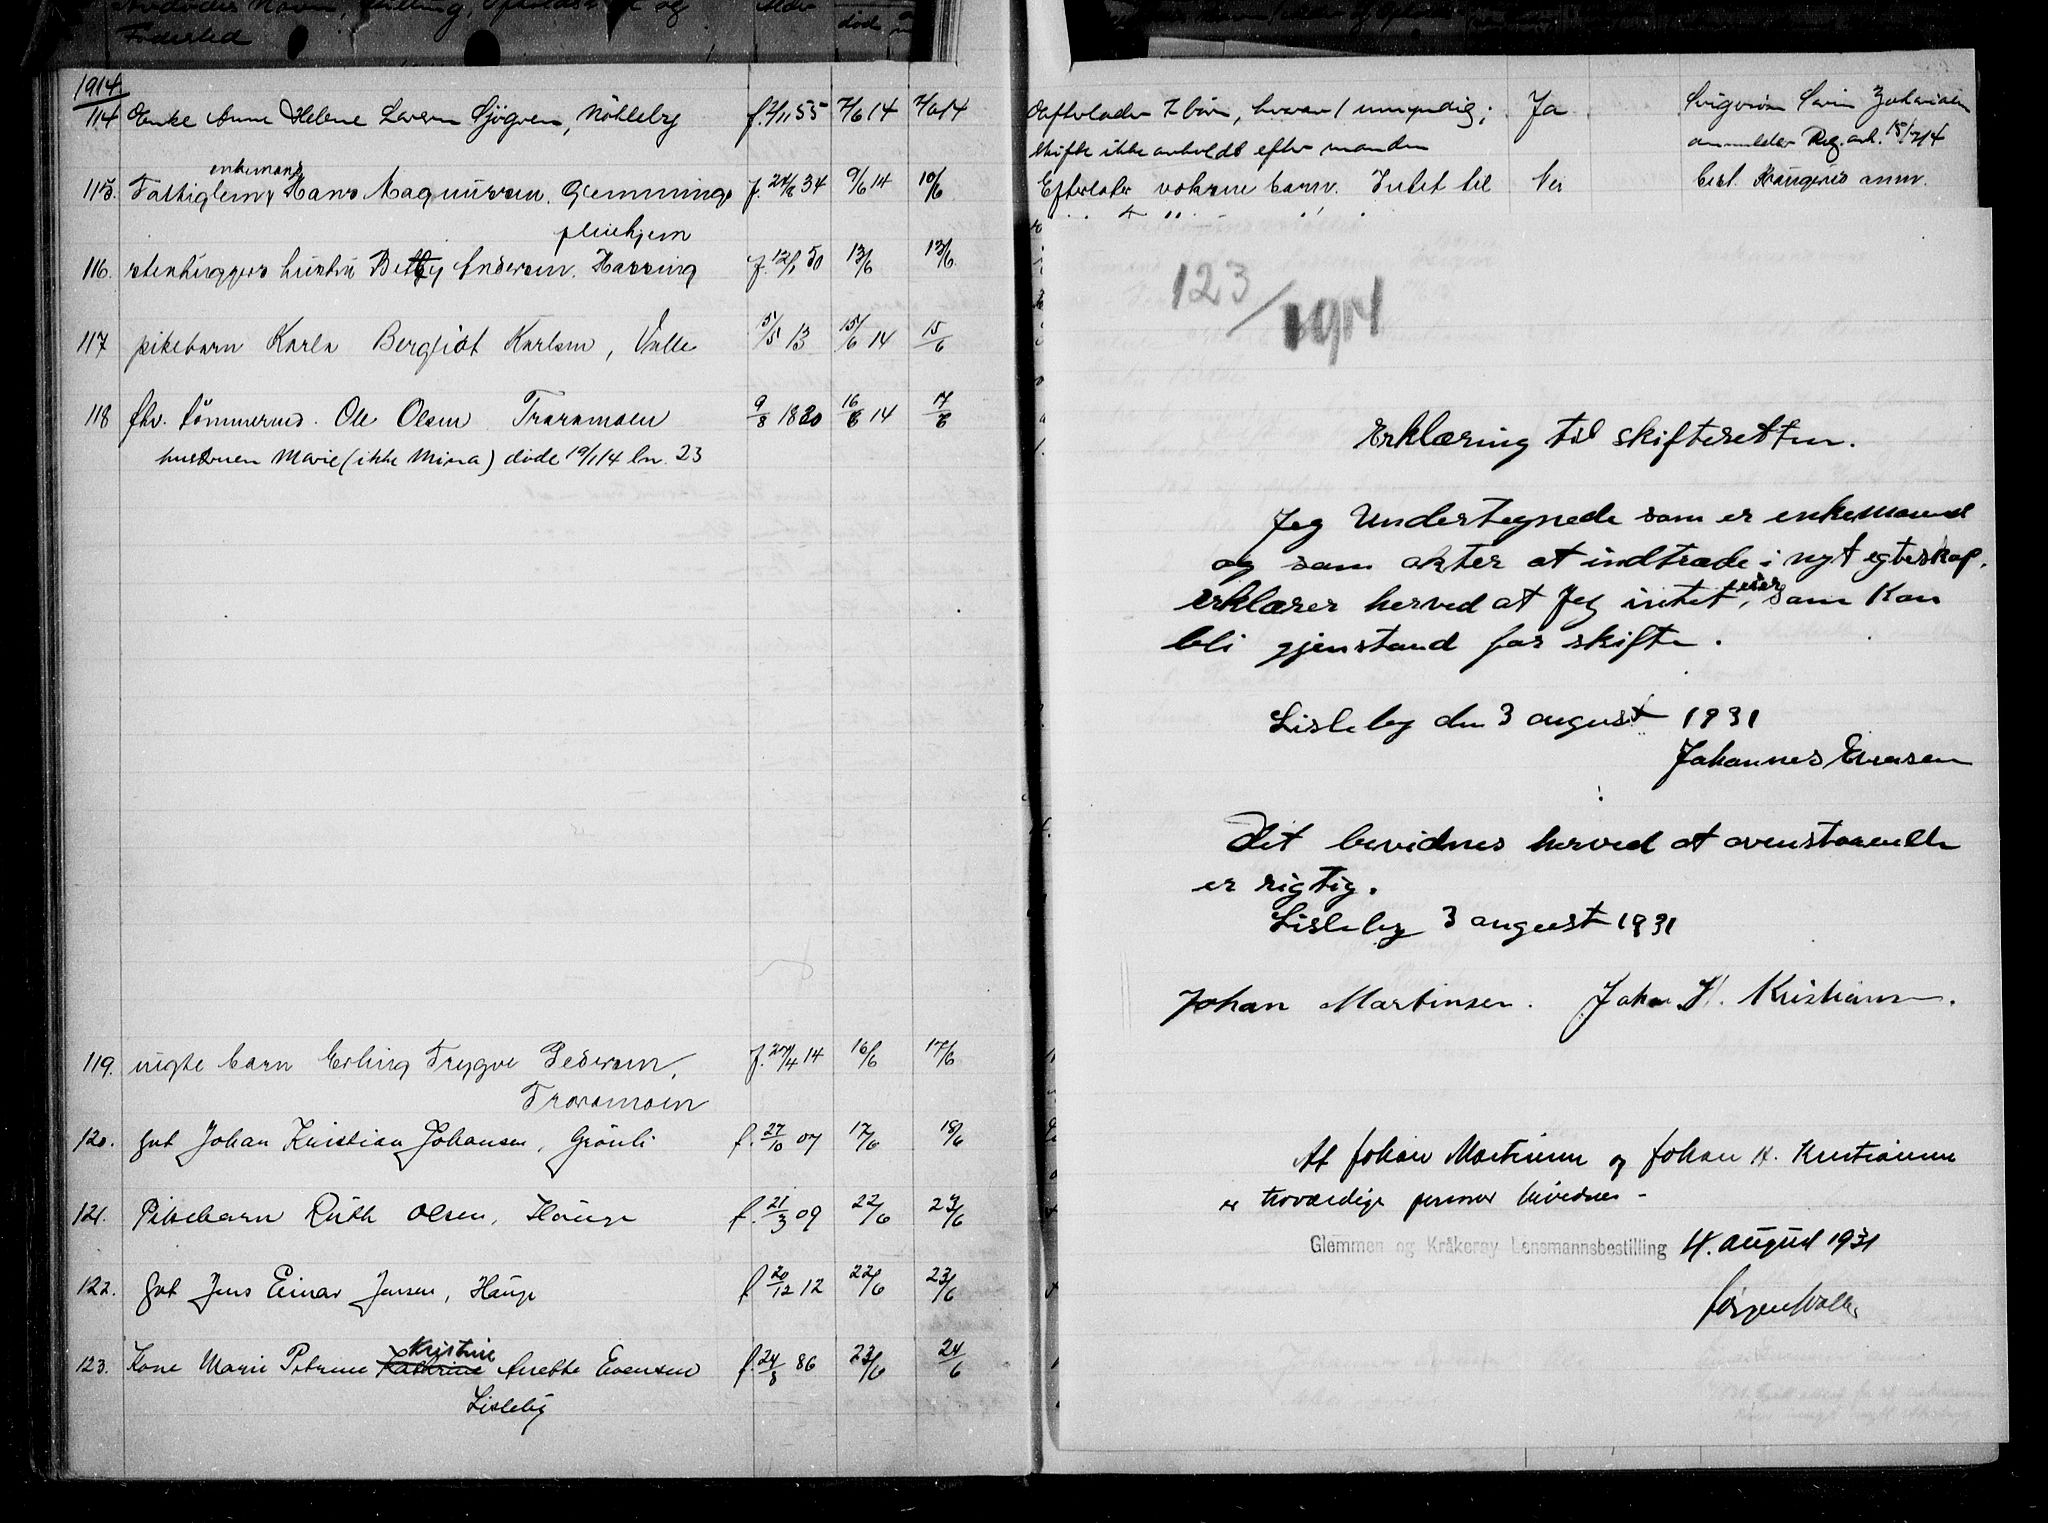 Avdødes Navn, Stilling, Opholdssted og
Fødested
død
1914
114 Enke Anne Helene Larsen Sjögren, Nöhleby f. 2/11 55 7/6 14 7/6 14
enkemand
115. Fattiglem Hans Magnussen. Glemminge f. 24/8 34 9/6 14 10/6
pleiehjem
116. stenhuggers hustru Betzy Andersen. Hassing f. 12/1 50 13/6 13/6
117 pikebarn Karla Bergliot Karlsen, Valle 5/5 13 15/6 14 15/6
118 fhv. tømmermd. Ole Olsen Traramoen 9/8 1820 16/6 14 17/6
hustruen Marie (ikke Mina) døde 19/1 14 ln. 23
119. uegte barn Erling Trygve Pedersen, f. 27/4 14 16/6 17/6
Traramoen
120. gut Johan Kristian Johansen, Grönli f. 27/10 07 17/6 18/6
121. Pikebarn Ruth Olsen, Hauge f. 21/3 09 22/6 23/6
122. gut Jens Einar Jensen, Hauge f. 20/12 12 22/6 23/6
Kristine
123. Kone Marie Petrine Kathrine Anette Evensen f. 24/8 86 23/6 24/6
Lisleby
Efterlader 7 børn, hvorav 1 umyndig; Ja Svigersøn
skifte ikke avholdt efter manden anmelder 15/7 14
Efterlater voksne barn. Intet til Nei anm.
123/1914
Erklæring til skifteretten.
Jeg Undertegnede som er enkemand
og som akter at indtræde i nyt egteskap.
erklærer herved at Jeg intet eier, som Kan
bli gjenstand for skifte.
Lisleby den 3 august 1931
Johannes Evensen
Det bevidnes herved at ovenstaaende
er rigtig.
Lisleby 3 august 1931
Johan Martinsen. Johan H. Kristiansen.
At Johan Martinsen og Johan H. Kristiansen
er troværdige personer bevidnes -
Glemmen og Kråkerøy Lensmannsbestilling 4. august 1931